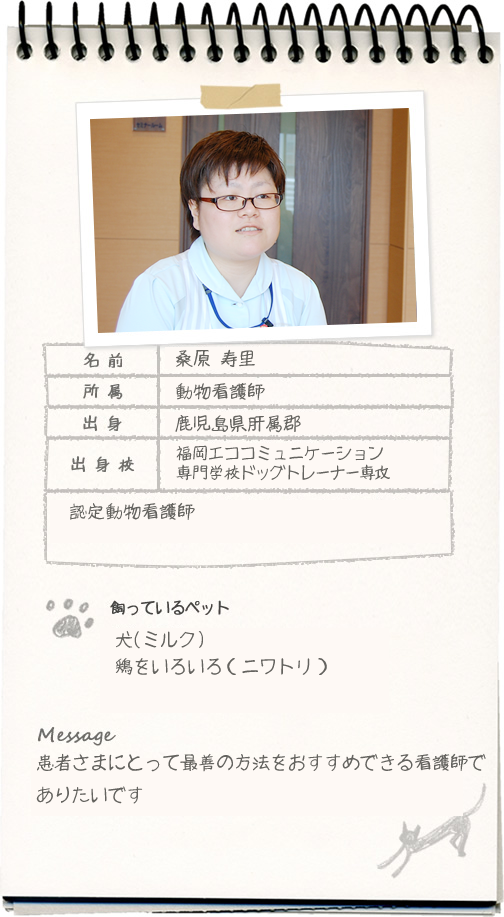 名前 桑原 寿里
所属 動物看護師
出身 鹿児島県肝属郡
出身校 福岡エココミュニケーション
専門学校ドッグトレーナー専攻
認定動物看護師
飼っているペット
犬(ミルク)
鶏をいろいろ(ニワトリ)
Message
患者さまにとって最善の方法をおすすめできる看護師で
ありたいです